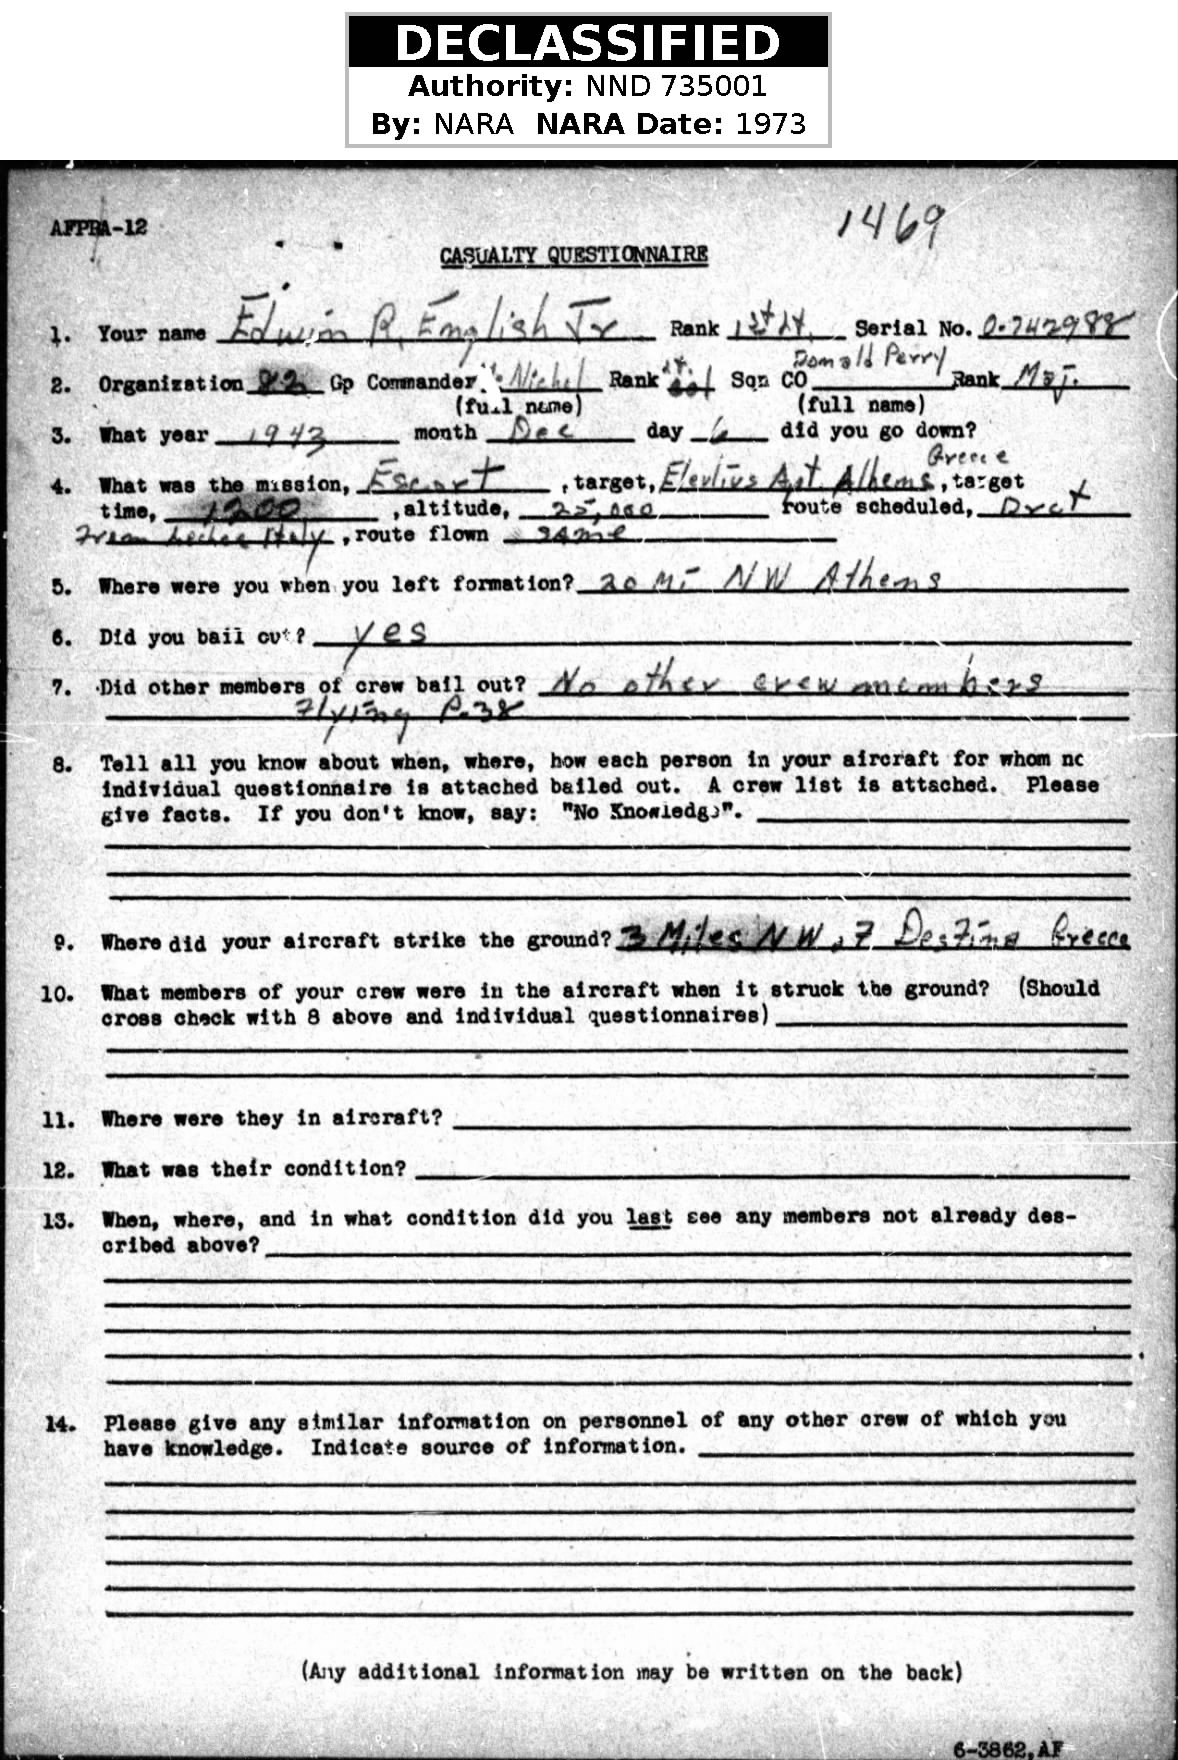 DECLASSIFIED
Authority: NND 735001
By: NARA NARA Date: 1973
AFPPA-12
1469
CASUALTY QUESTIONNAIRE
1. Your name Edwin R. English Jr Rank 1st Lt. Serial No. O-742988
2. Organization 82 Gp Commander Nichol Rank Lt. Col Sqn CO Donald Perry Rank Maj.
(full name) (full name)
3. What year 1943 month Dec day 6 did you go down?
4. What was the mission, Escort, target, Apt. Athens Greece, target
time, 1200, altitude, 25,000 route scheduled, Drct
From Italy, route flown same
5. Where were you when you left formation? 20 Mi NW Athens
6. Did you bail out? yes
7. Did other members of crew bail out? No other crew members
Flying P-38
8. Tell all you know about when, where, how each person in your aircraft for whom no
individual questionnaire is attached bailed out. A crew list is attached. Please
give facts. If you don't know, say: "No Knowledge".
9. Where did your aircraft strike the ground? 3 Miles NW of Desfina Greece
10. What members of your crew were in the aircraft when it struck the ground? (Should
cross check with 8 above and individual questionnaires)
11. Where were they in aircraft?
12. What was their condition?
13. When, where, and in what condition did you last see any members not already des-
cribed above?
14. Please give any similar information on personnel of any other crew of which you
have knowledge. Indicate source of information.
(Any additional information may be written on the back)
6-3862,AF